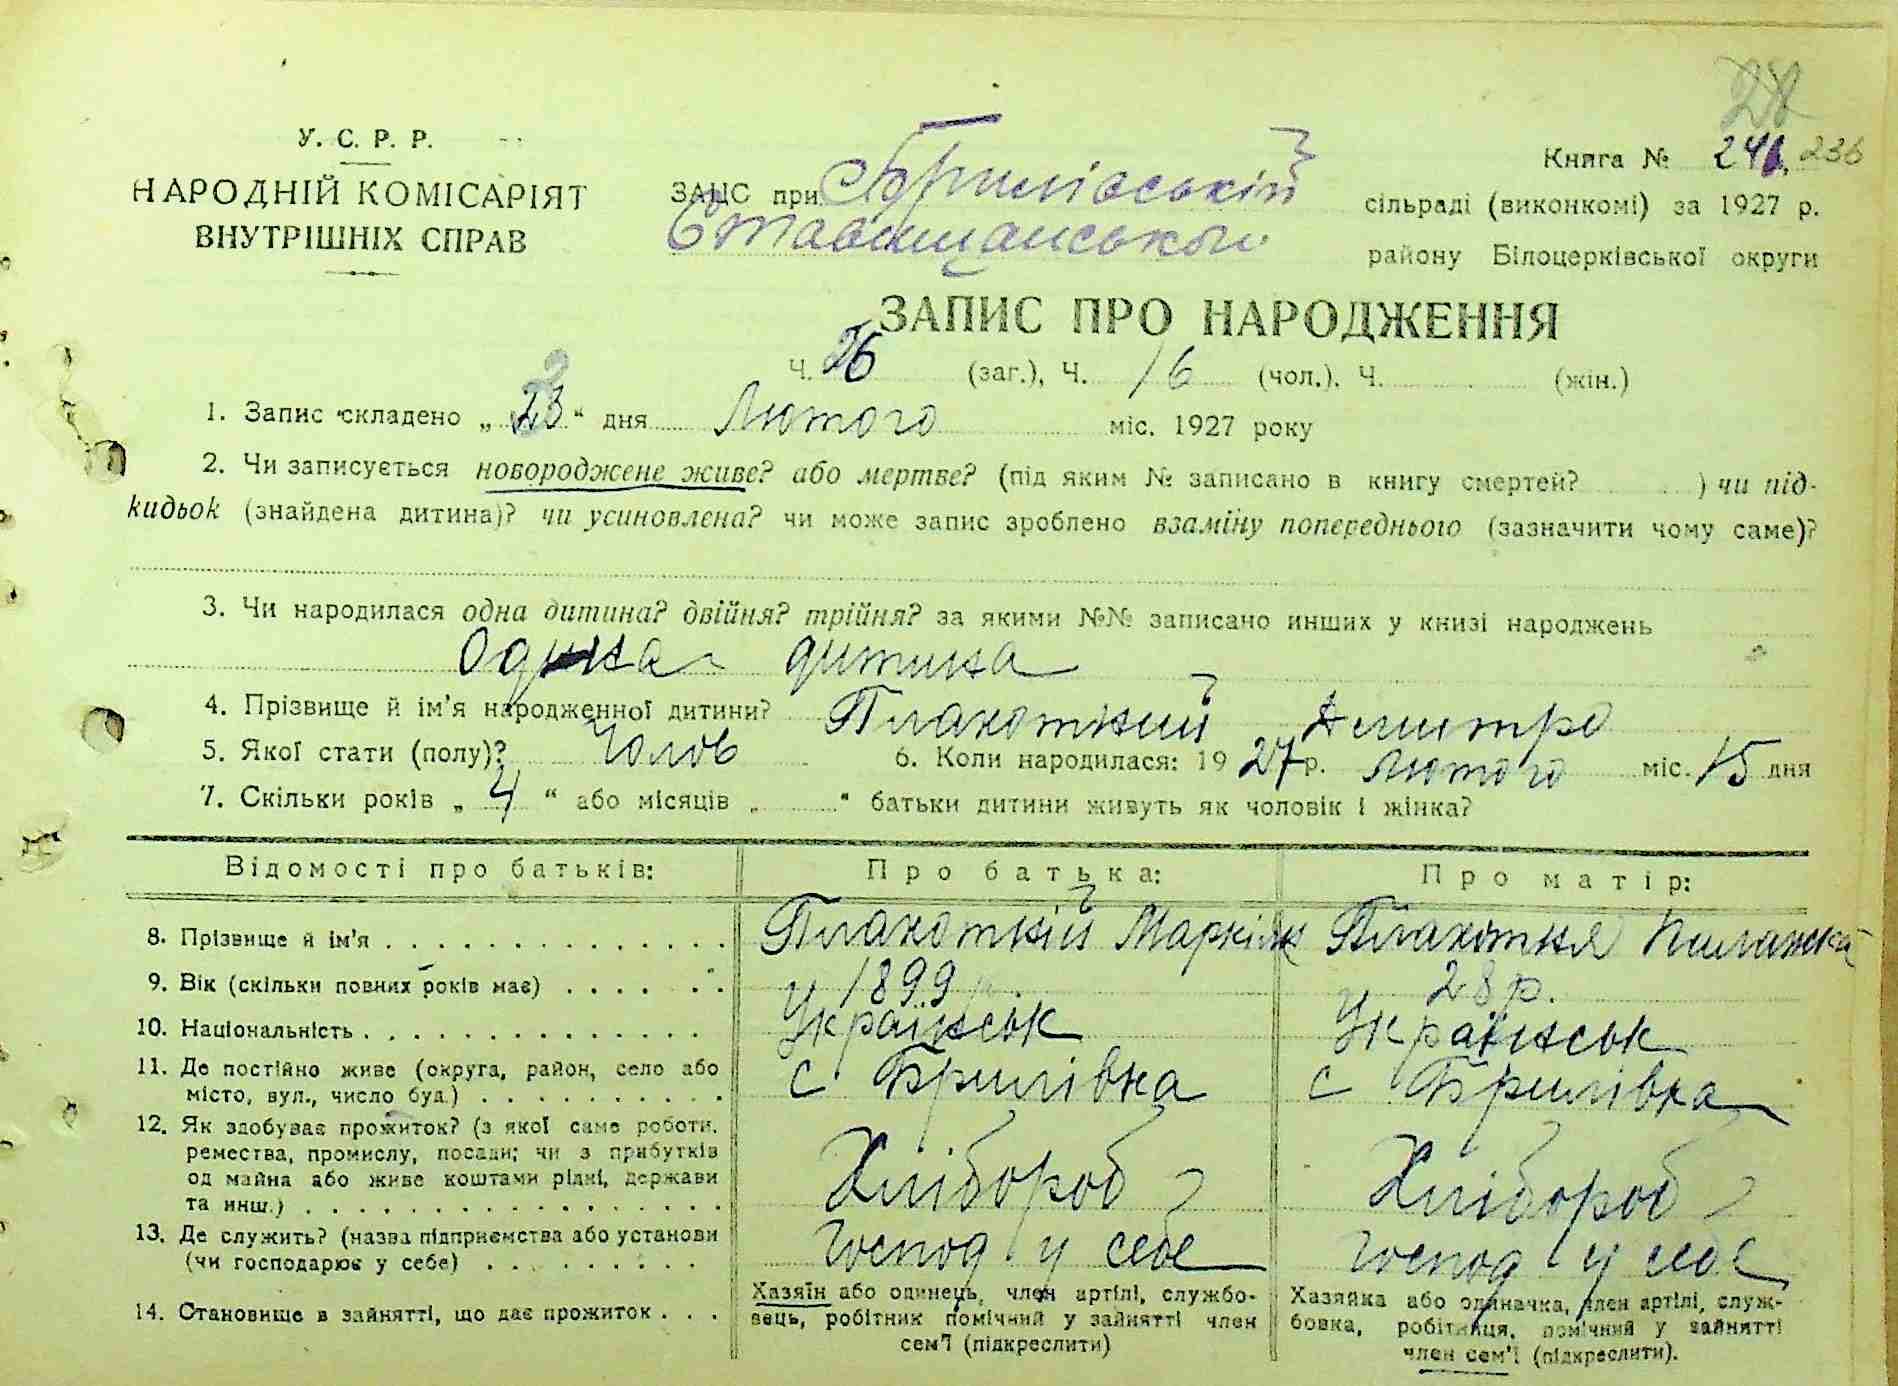 28
У. С. Р. Р.
НАРОДНІЙ КОМІСАРІЯТ
ВНУТРІШНІХ СПРАВ
ЗАЦС при Брилівській
Книга № 241, 236
сільраді (виконкомі) за 1927 р.
Ставищанського
району Білоцерківської округи
ЗАПИС ПРО НАРОДЖЕННЯ
Ч. 26 (заг.), Ч. 16 (чол.). Ч. (жін.)
1. Запис складено „ 23 “ дня Лютого міс. 1927 року
2. Чи записується новороджене живе? або мертве? (під яким № записано в книгу смертей? ) чи під-
кидьок (знайдена дитина)? чи усиновлена? чи може запис зроблено взаміну попереднього (зазначити чому саме)?
3. Чи народилася одна дитина? двійня? трійня? за якими №№ записано инших у книзі народжень
Одна дитина
4. Прізвище й ім'я народженної дитини? Плахотний Дмитро
5. Якої стати (полу)? Чолов 6. Коли народилася: 1927 р. Лютого міс. 15 дня
7. Скільки років „ 4 “ або місяців „ “ батьки дитини живуть як чоловік і жінка?
Відомості про батьків: Про батька: Про матір:
8. Прізвище й ім'я . . . . . . . . . . . . . . Плахотній Маркіян Плахотня Пилажка
9. Вік (скільки повних років має) . . . . . . 1899 р. 28 р.
10. Національність . . . . . . . . . . . . . . Українськ Українськ
11. Де постійно живе (округа, район, село або
місто, вул., число буд.) . . . . . . . . . . с Брилівка с Брилівка
12. Як здобуває прожиток? (з якої саме роботи,
ремества, промислу, посади; чи з прибутків
од майна або живе коштами рідні, держави
та инш.) . . . . . . . . . . . . . . . . . . Хлібороб Хлібороб
13. Де служить? (назва підприємства або установи
(чи господарює у себе) . . . . . . . . . Господ у себе Господ у себе
14. Становище в зайнятті, що дає прожиток . . .
Хазяїн або одинець, член артілі, службо-
вець, робітник помічний у зайнятті член
сем'ї (підкреслити)
Хазяйка або одиначка, член артілі, служ-
бовка, робітниця, помічний у зайнятті
член сем'ї (підкреслити).